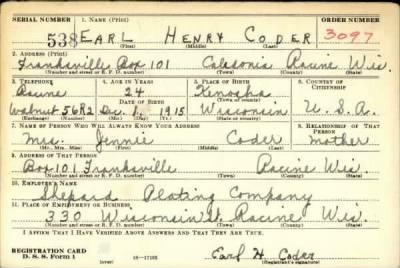 SERIAL NUMBER 1. NAME (Print) ORDER NUMBER
538 EARL HENRY CODER 3097
(First) (Middle) (Last)
2. ADDRESS (Print)
Franksville Box 101 Caledonia Racine Wis.
(Number and street or R. F. D. number) (Town) (County) (State)
3. TELEPHONE 4. AGE IN YEARS 5. PLACE OF BIRTH 6. COUNTRY OF
Racine 24 Kenosha CITIZENSHIP
DATE OF BIRTH (Town or county)
Walnut 56R2 Dec. 1 1915 Wisconsin U. S. A.
(Exchange) (Number) (Mo.) (Day) (Yr.) (State or country)
7. NAME OF PERSON WHO WILL ALWAYS KNOW YOUR ADDRESS 8. RELATIONSHIP OF THAT PERSON
Mrs. Jennie Coder mother
(Mr., Mrs., Miss) (First) (Middle) (Last)
9. ADDRESS OF THAT PERSON
Box 101 Franksville Racine Wis.
(Number and street or R. F. D. number) (Town) (County) (State)
10. EMPLOYER'S NAME
Shepard Plating Company
11. PLACE OF EMPLOYMENT OR BUSINESS
330 Wisconsin st. Racine Wis.
(Number and street or R. F. D. number) (Town) (County) (State)
I AFFIRM THAT I HAVE VERIFIED ABOVE ANSWERS AND THAT THEY ARE TRUE.
REGISTRATION CARD
D. S. S. Form 1 (over) Earl H. Coder
(Registrant's signature)